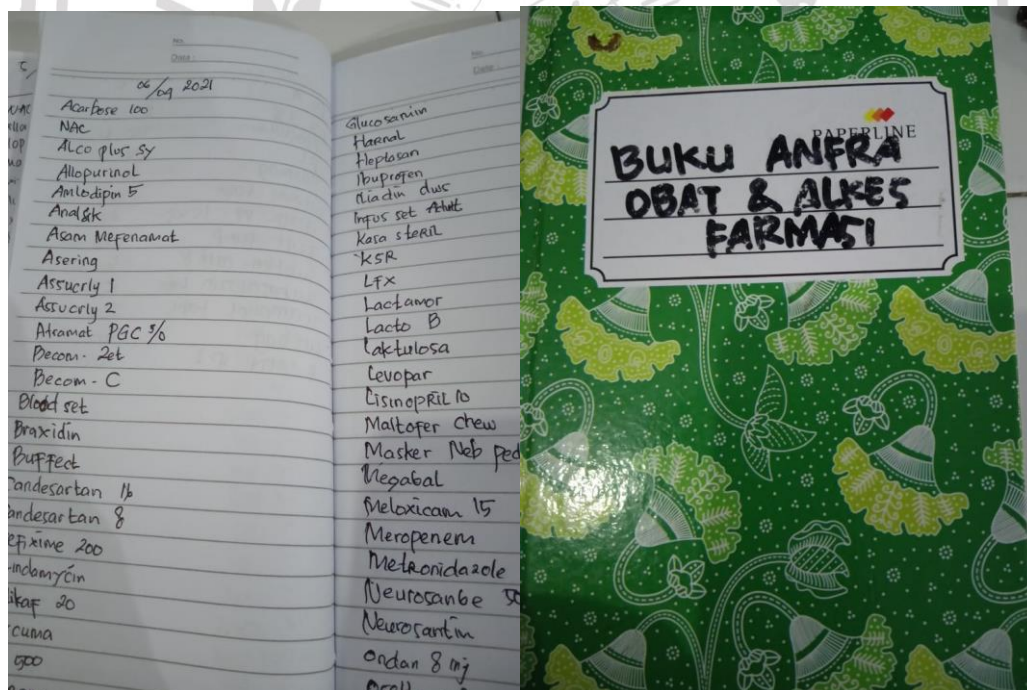 No.
Date :
06/09 2021
Acarbose 100
NAC
ALco plus Sy
Allopurinol
Amlodipin 5
Asam Mefenamat
Asering
Assucrly 1
Assucrly 2
Atramat PGC
Becom - Zet
Becom - C
Blood set
Braxidin
Buffect
andesartan 16
andesartan 8
efixime 200
indamycin
ikaf 20
cuma
500
Glucosamin
Harnal
Heptasan
Ibuprofen
Infus set
Kasa steril
KSR
LFX
Lactamor
Lacto B
Laktulosa
Levopar
Lisinopril 10
Maltofer chew
Masker Neb ped
Megabal
Meloxicam 15
Meropenem
Metronidazole
Neurosanbe
Neurosantin
Ondan 8 inj
PAPERLINE
BUKU ANFRA
OBAT & ALKES
FARMASI